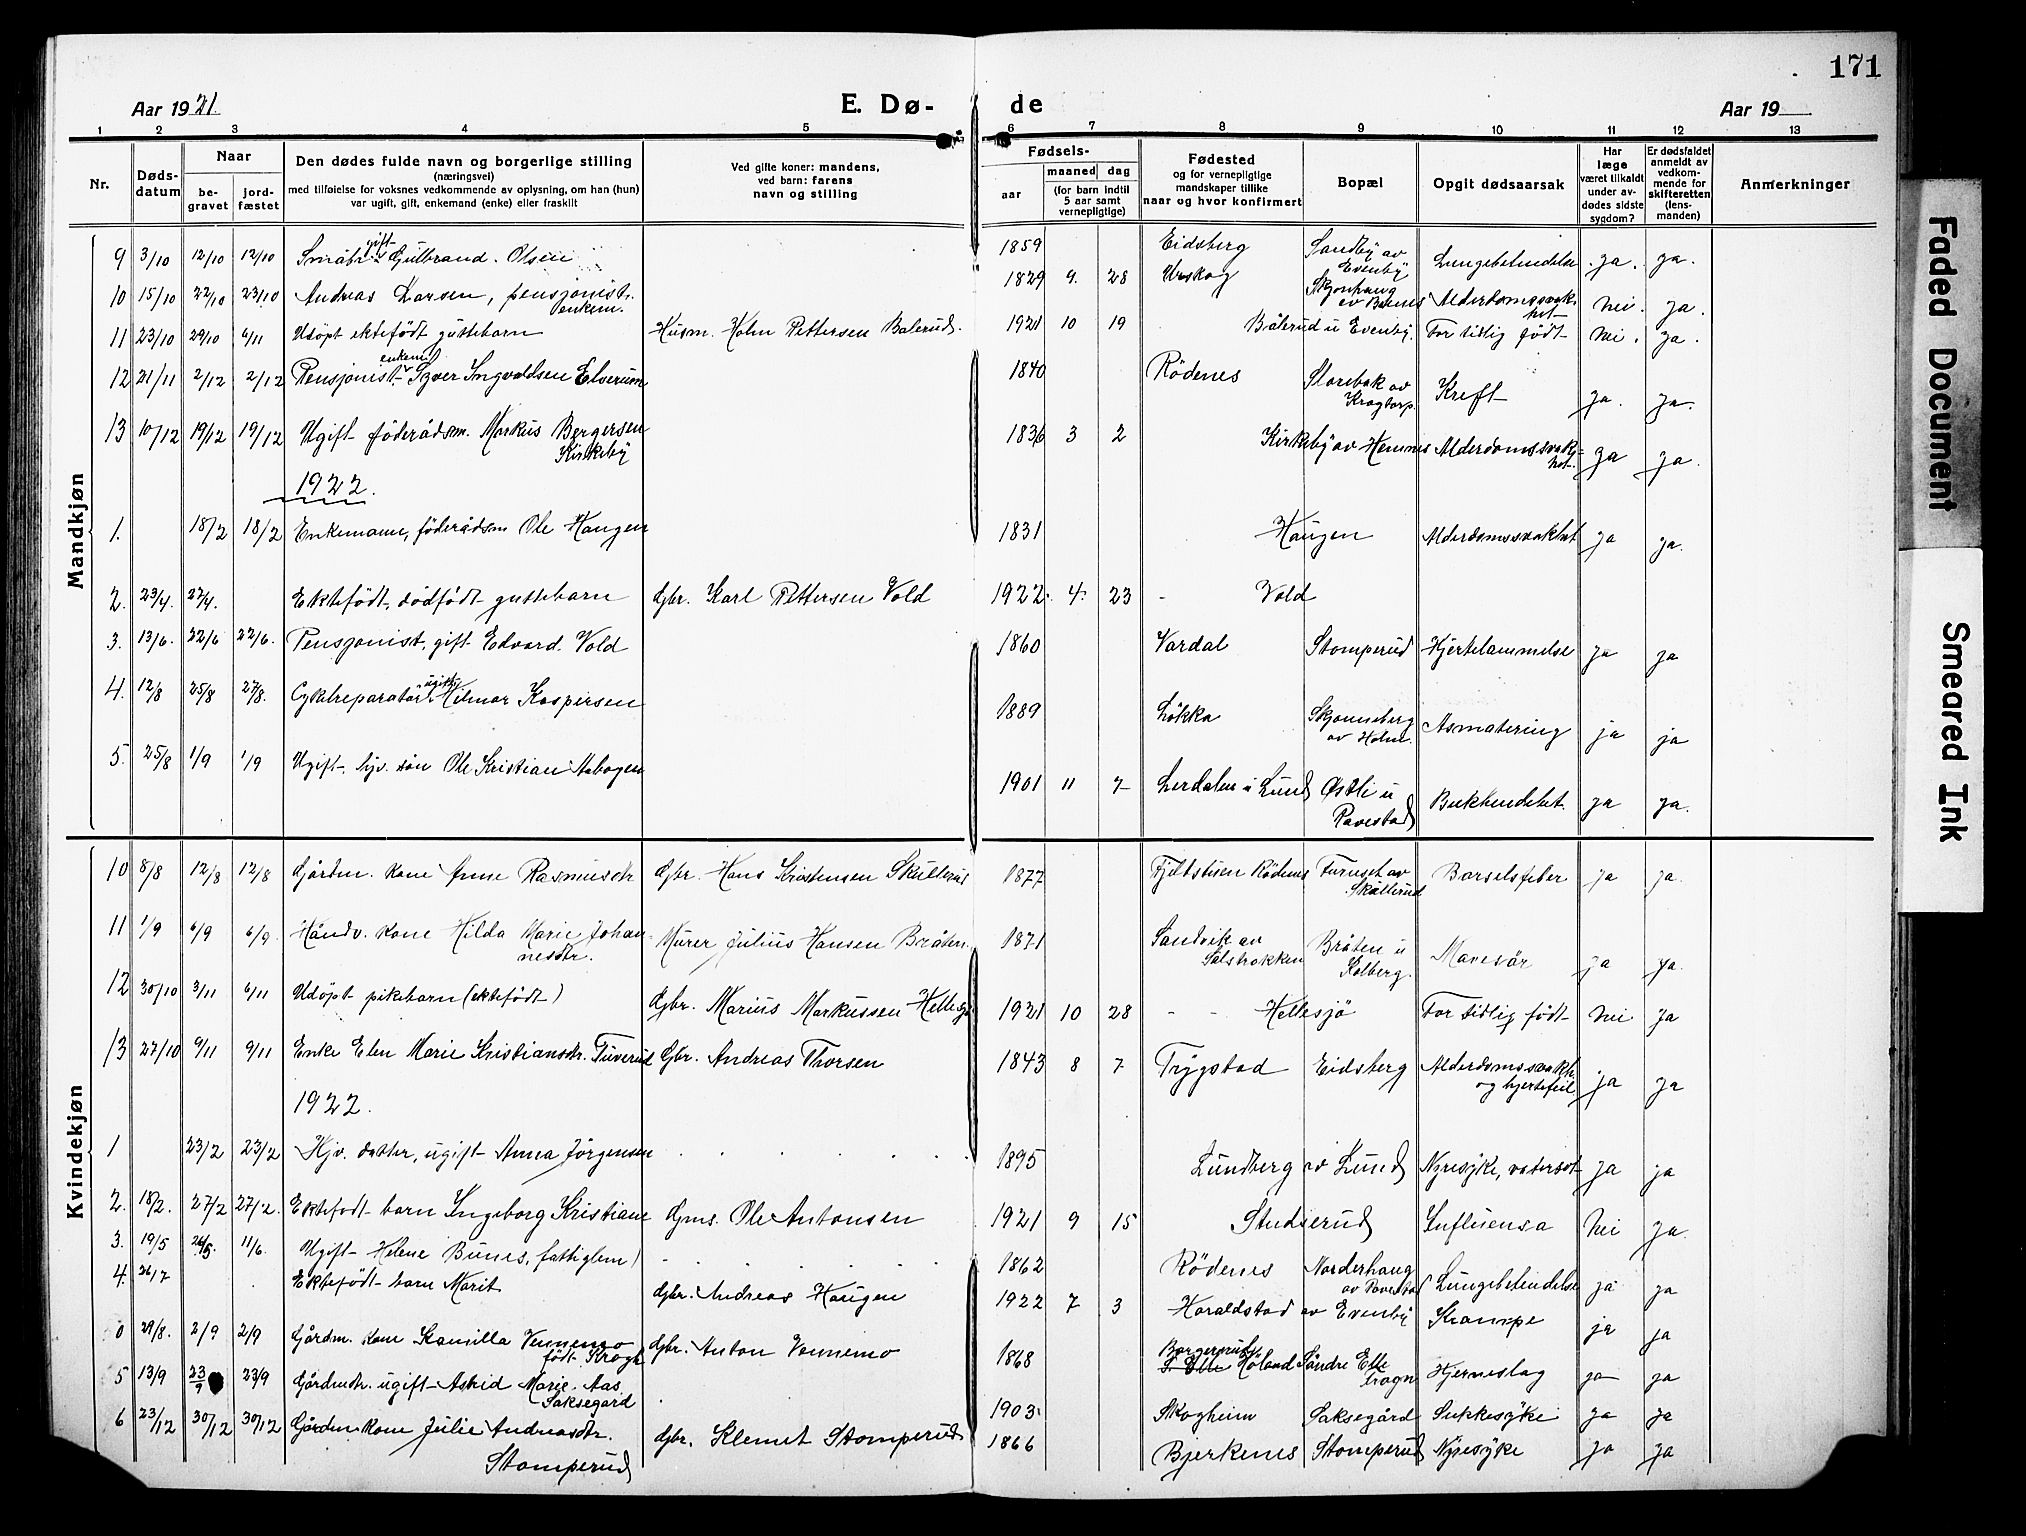 171
Aar 1921. E. Dø- de Aar 19
1 2 3 4 5 6 7 8 9 10 11 12 13
Nr. Døds-datum Naar be-gravet jord-fæstet Den dødes fulde navn og borgerlige stilling (næringsvei) med tilføielse for voksnes vedkommende av oplysning, om han (hun) var ugift, gift, enkemand (enke) eller fraskilt Ved gifte koner: mandens, ved barn: farens navn og stilling Fødsels- aar maaned dag (for barn indtil 5 aar samt vernepligtige) Fødested og for vernepligtige mandskaper tillike naar og hvor konfirmert Bopæl Opgit dødsaarsak Har læge været tilkaldt under av-dødes sidste sygdom? Er dødsfaldet anmeldt av vedkom-mende for skifteretten (lens-manden) Anmerkninger
Mandkjøn
9 3/10 12/10 12/10 Småbr. gift Gulbrand Olsen 1859 Eidsberg Sandby av Evenby Lungebetendelse ja. ja.
10 15/10 22/10 23/10 Andreas Larsen, pensjonist. enkem. 1829 9. 28 Urskog Skjønhaug av Bunes Alderdomssvakhet nei. ja.
11 23/10 29/10 6/11 Udöpt ektefödt guttebarn Husm. Holm Pettersen Bålerud. 1921 10 19 Bålerud u Evenby. For tidlig födt nei. ja.
12 21/11 2/12 2/12 Pensjonist enkem. Syver Ingvaldsen Elverum 1840 Rödenes Storebak av Krogtorp. Kreft ja. ja.
13 10/12 19/12 19/12 Ugift föderådsm. Markus Bergersen Kirkeby 1836 3 2 Kirkeby av Hemnes Alderdomssvakhet. ja ja.
1922.
1. 18/2 18/2 Enkemann, föderådsm Ole Haugen 1831 Haugen Alderdomssvakhet ja ja.
2. 23/4. 27/4. Ektefödt, dödfödt guttebarn Gbr. Karl Pettersen Vold 1922. 4. 23 - Vold
3. 13/6. 22/6 22/6. Pensjonist, gift Edvard Vold 1860 Vardal Stomperud Hjertelammelse ja ja
4. 12/8 25/8 27/8. Cykelreparatör ugift Hilmar Kaspersen 1889 Lökka Skjønneberg av Holm. Asmatering ja ja
5. 25/8 1/9 1/9 Ugift, hjv. sön Ole Kristian Aabogen 1901 11 7 Lerdalen u Lund Østli u Ravestad Bukhindebet. ja ja.
Kvindekjøn
10 8/8 12/8 12/8 Gårdm. kone Anne Rasmusdtr Gbr. Hans Kristensen Skullerud 1877 Fjeldstuen Rödenes Furuset av Skullerud Barselsfeber ja ja.
11 1/9 6/9 6/9. Håndv. kone Hilda Marie Johannesdtr. Murer Julius Hansen Bråten. 1871 Sandvik av Sælstrokken Bråten u Kolberg. Mavesår ja ja.
12 30/10 3/11 6/11 Udöpt pikebarn (ektefödt) Gbr. Marius Markussen Hellesjö 1921 10 28 - - Hellesjö For tidlig födt nei ja
13 27/10 9/11 9/11 Enke Elen Marie Kristiansdtr. Tuverud Gbr. Andreas Thorsen 1843 8 7 Trygstad Eidsberg Alderdomssvakh. og hjertefeil ja ja
1922.
1 23/2 23/2 Hjv. datter, ugift Anna Jörgensen 1895 Lundberg av Lund Nyresyke, vatersot ja ja
2. 18/2. 27/2 27/2. Ektefödt barn Ingeborg Kristiane Gms. Ole Antonsen 1921 9 15 Studserud Influensa nei ja.
3. 19/5 26/5. 11/6. Ugift Helene Bunes, fattiglem 1862 Rödenes Norderhaug av Ravestad Lungebetendelse ja ja
4. 26/7 Ektefödt barn Marit Gbr. Andreas Haugen 1922 7 3 Haraldstad av Evenby Krampe ja ja
0 29/8. 2/9 2/9 Gårdm. kone Kamilla Vennemo födt Krogh Gbr. Anton Vennemo 1868 Borgerud S. Elle Höland Söndre Elle Frogn Hjerneslag ja ja
5 13/9 23/9 23/9 Gårdmdtr. ugift Astrid Marie Aas. Saksegård 1903. Skogheim Saksegård Sukkesyke ja ja
6 23/12 30/12 30/12 Gårdm. kone Julie Andreasdtr. Stomperud Gbr. Klemet Stomperud 1866 Bjerkenes Stomperud Nyresyke ja ja
Faded Document
Smeared Ink